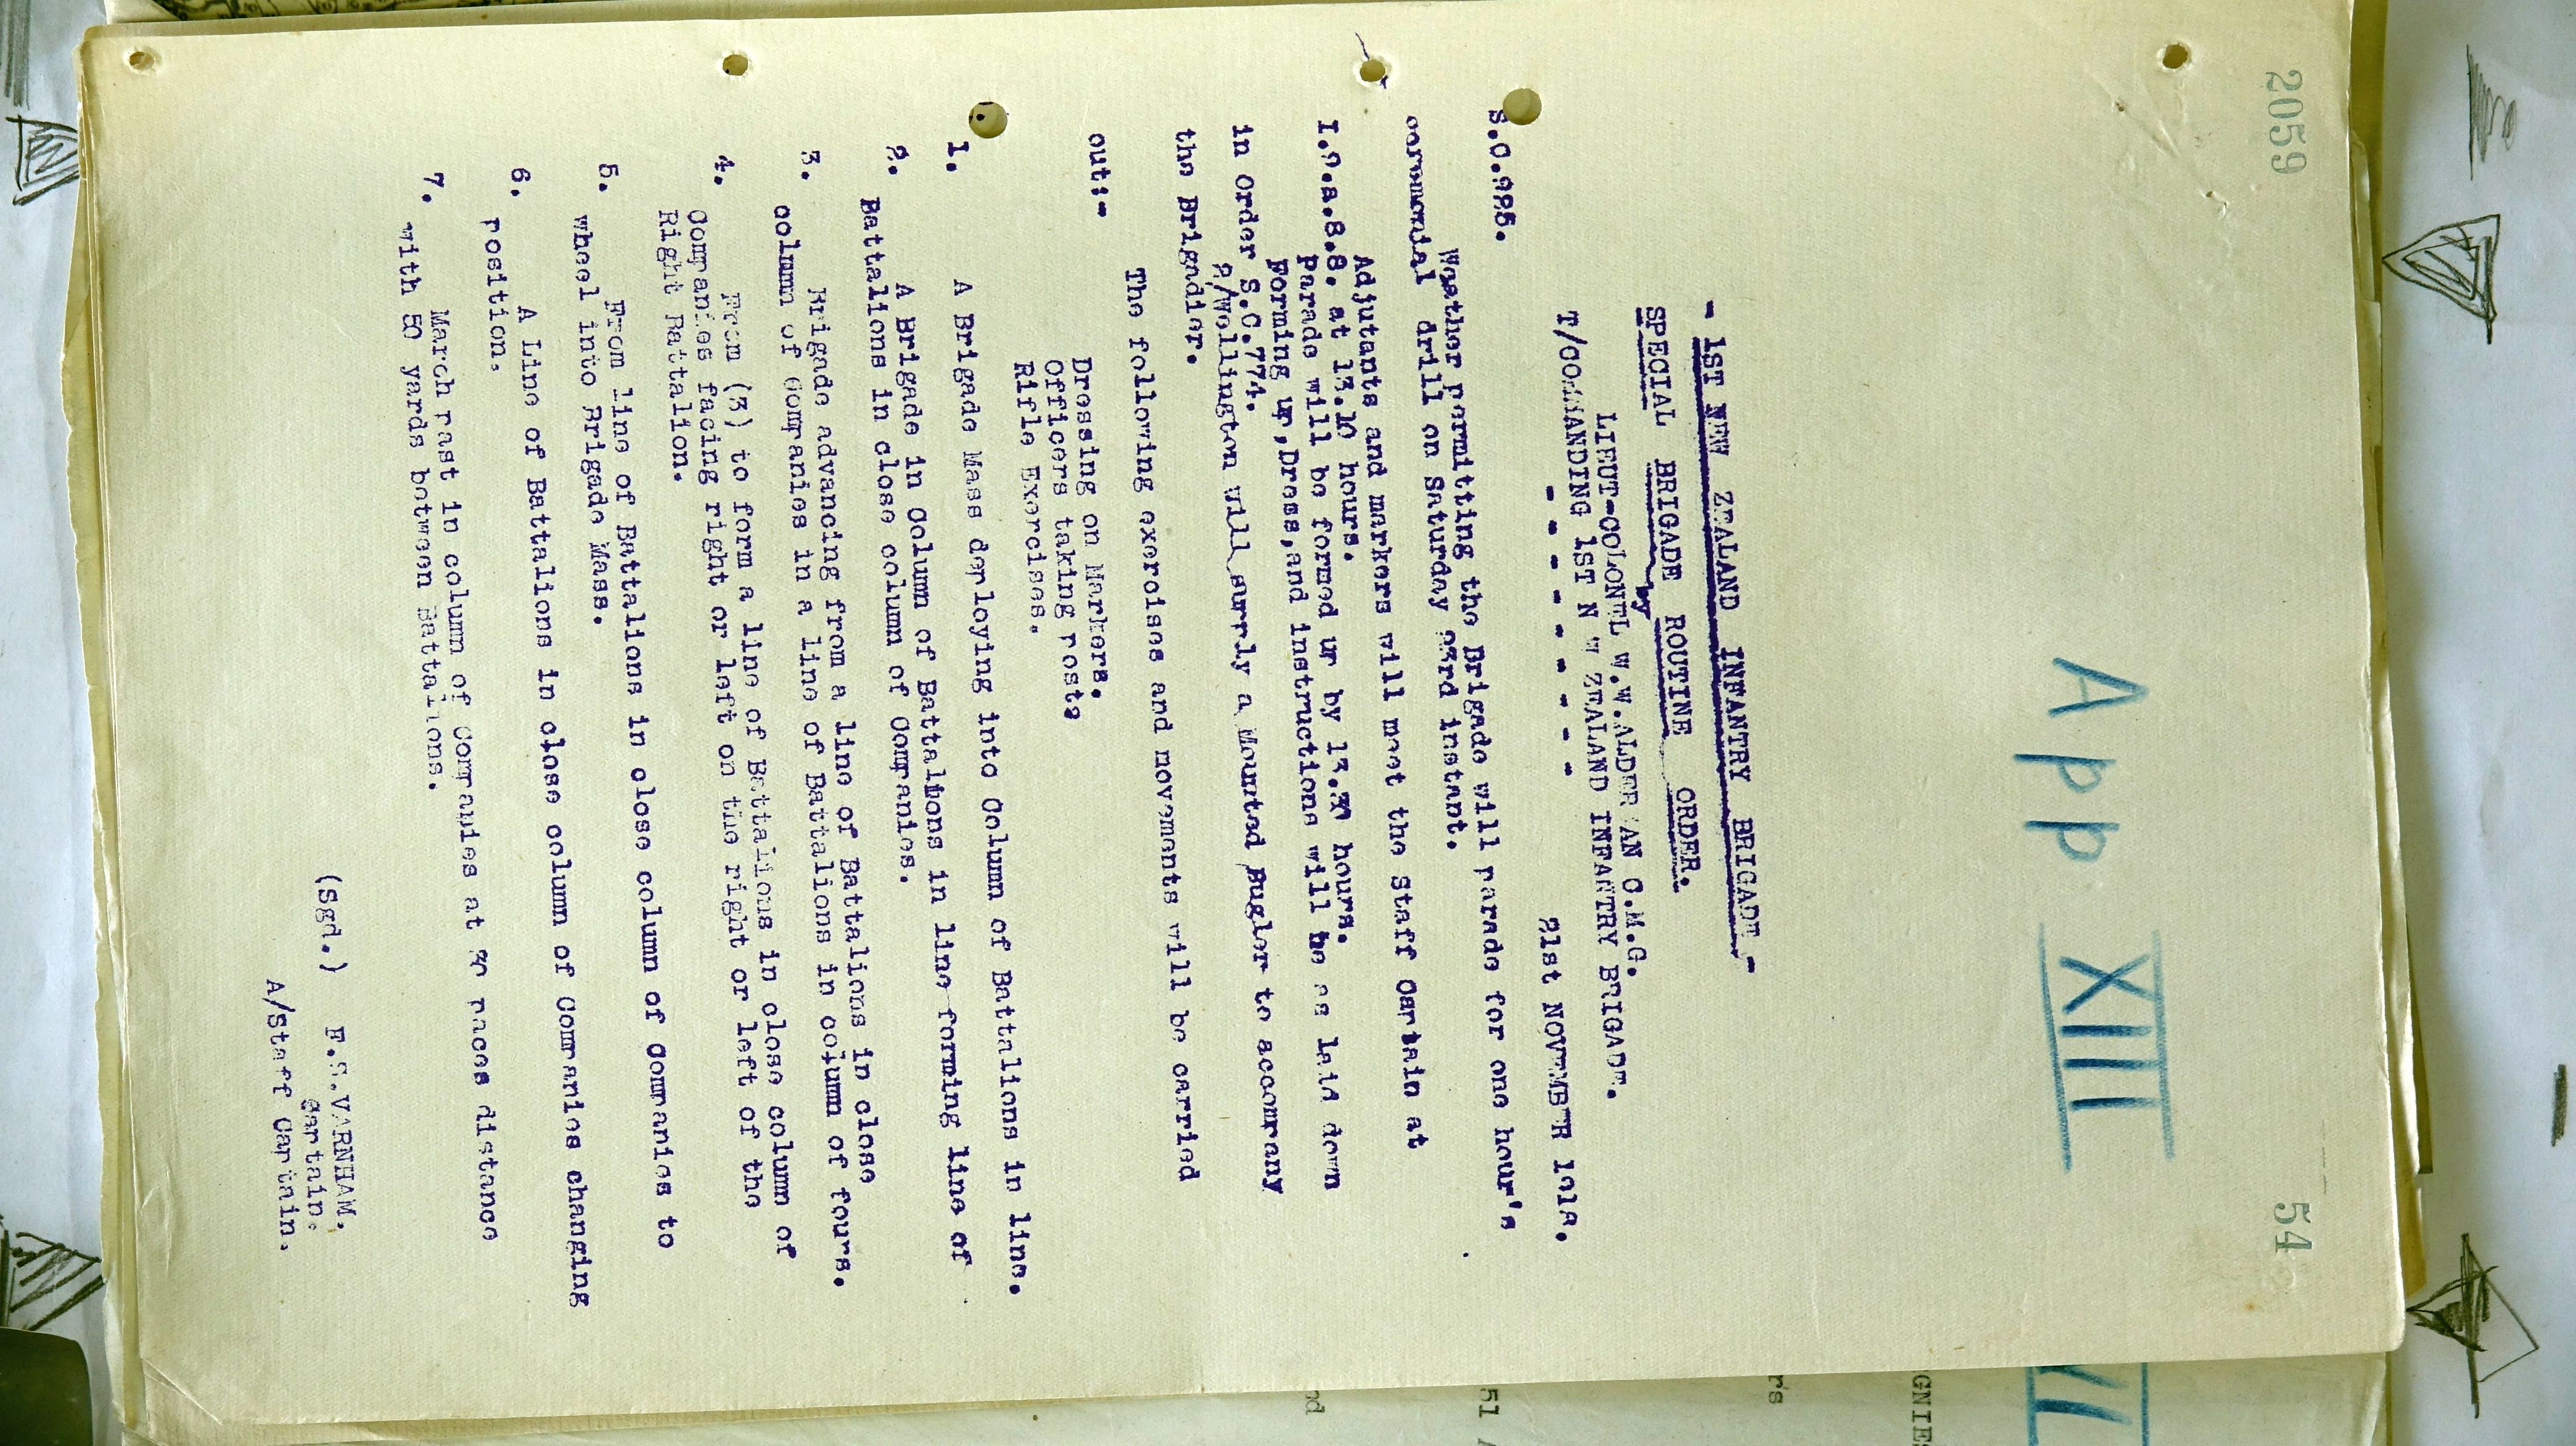 2059
54
App XIII
- 1ST NEW ZEALAND INFANTRY BRIGADE -
SPECIAL BRIGADE ROUTINE ORDER.
by
LIEUT-COLONEL W.W.ALDER AN C.M.G.
T/COMMANDING 1ST N W ZEALAND INFANTRY BRIGADE.
- - - - - - - - -
21st NOVEMBER 1918.
S.C.995.
Weather permitting the Brigade will parade for one hour's
ceremonial drill on Saturday 23rd instant.
Adjutants and markers will meet the Staff Captain at
at 13.10 hours.
Parade will be formed up by 13.30 hours.
Forming up,Dress,and instructions will be as laid down
in Order S.C.774.
2/Wellington will supply a Mounted Bugler to accompany
the Brigadier.
The following exercises and movements will be carried
out:-
Dressing on Markers.
Officers taking posts
Rifle Exercises.
1. A Brigade Mass deploying into Column of Battalions in line.
2. A Brigade in Column of Battalions in line forming line of
Battalions in close column of Companies.
3. Brigade advancing from a line of Battalions in close
column of Companies in a line of Battalions in column of fours.
4. From (3) to form a line of Battalions in close column of
Companies facing right or left on the right or left of the
Right Battalion.
5. From line of Battalions in close column of Companies to
wheel into Brigade Mass.
6. A Line of Battalions in close column of Companies changing
position.
7. March past in column of Companies at 30 paces distance
with 50 yards between Battalions.
(Sgd.) F.S.VARNHAM.
Captain.
A/Staff Captain.
VI
GNIE
rs
51
nd